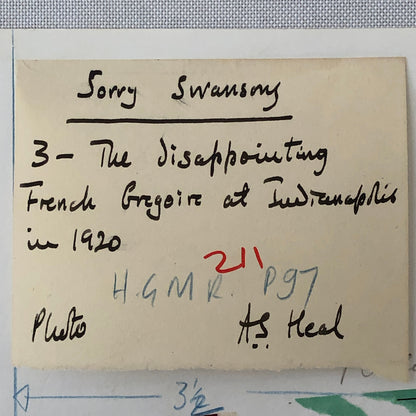 Sorry Swansong
3 - The disappointing
French Gregoire at Indianapolis
in 1920
211
H.G.M.R. P97
Photo A.S. Heal
3½